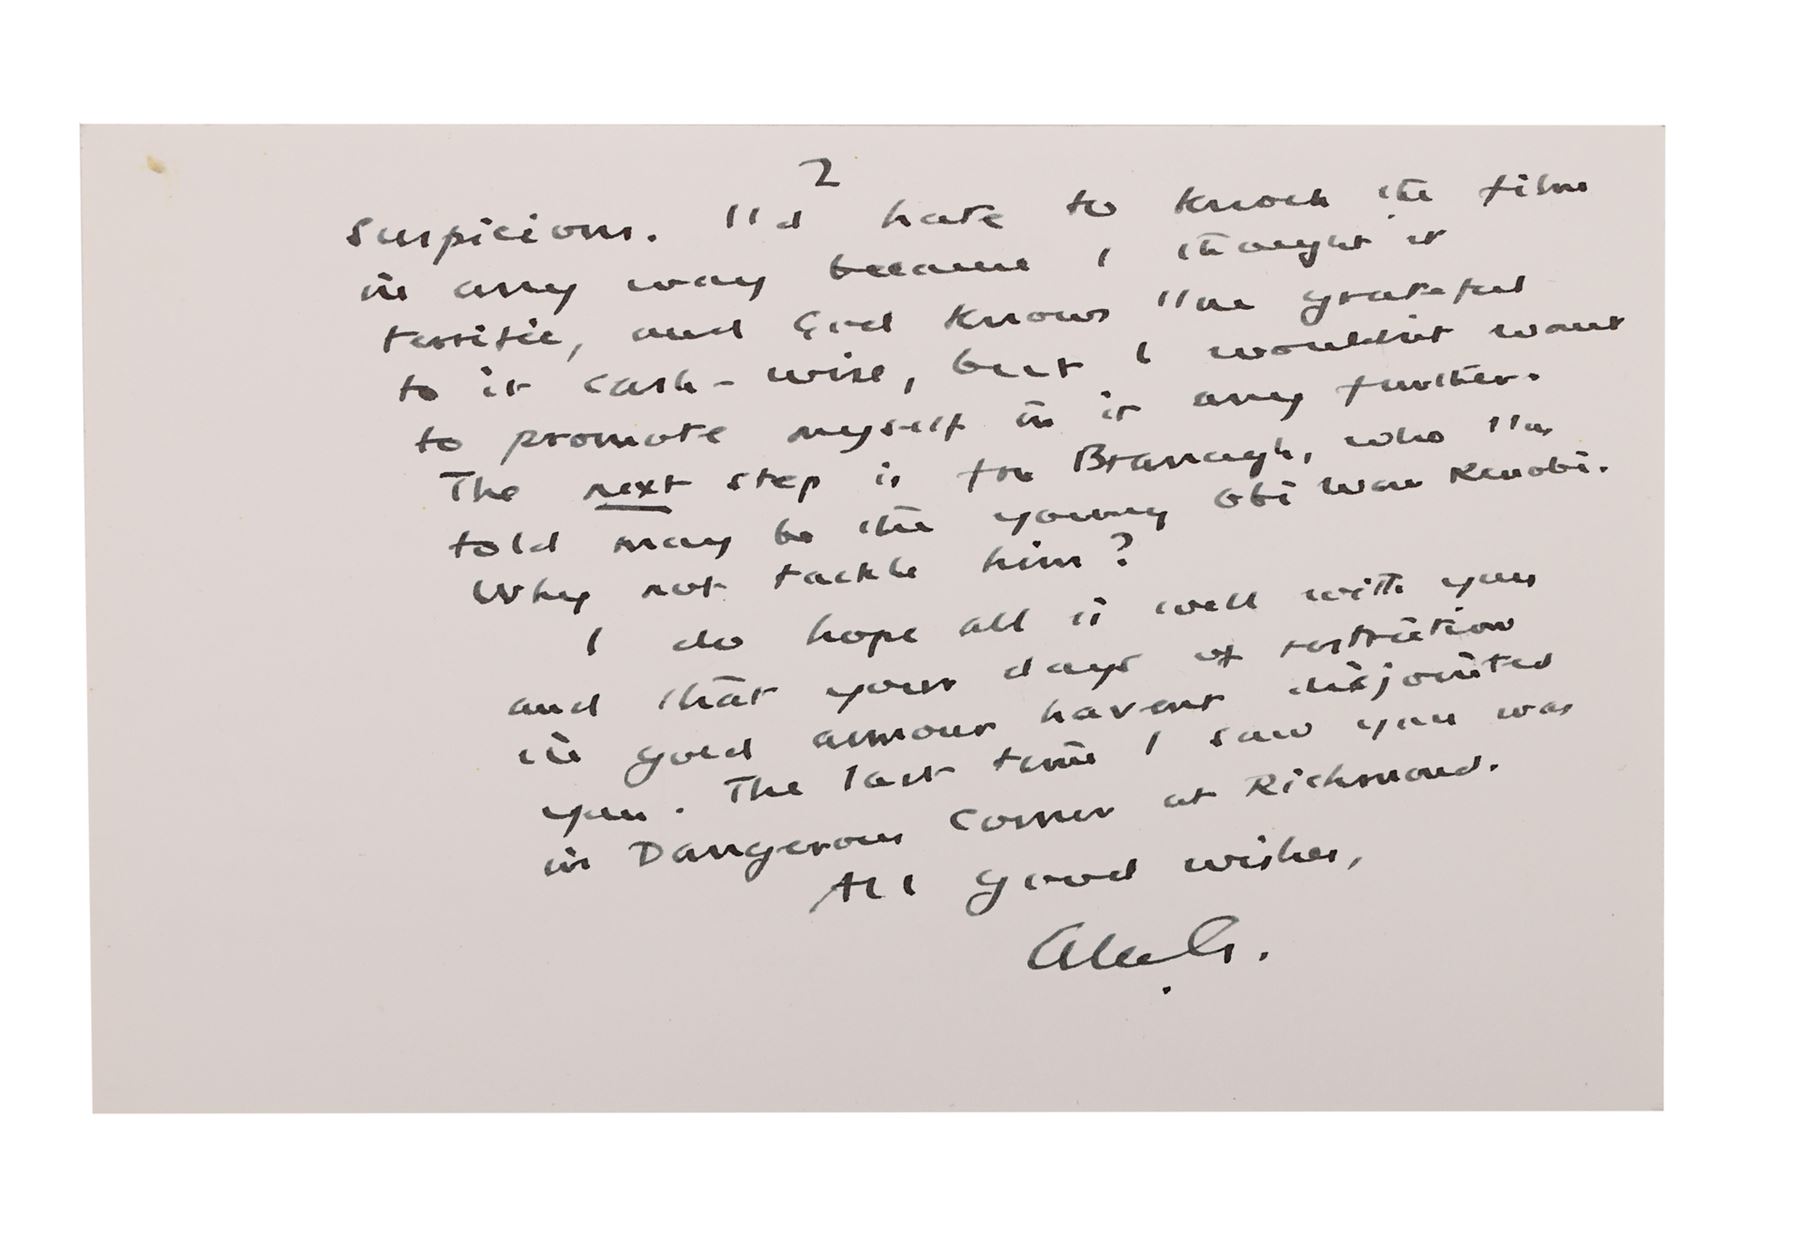 2
suspicions. I'd hate to knock the film
in any way because I thought it
terrific, and God knows I'm grateful
to it cash-wise, but I wouldn't want
to promote myself in it any further.
The next step is for Branagh, who I'm
told may be the young Obi Wan Kenobi.
Why not tackle him?
I do hope all is well with you
and that your days of restriction
in gold armour havent disjointed
you. The last time I saw you was
in Dangerous Corner at Richmond.
All good wishes,
Alec G.